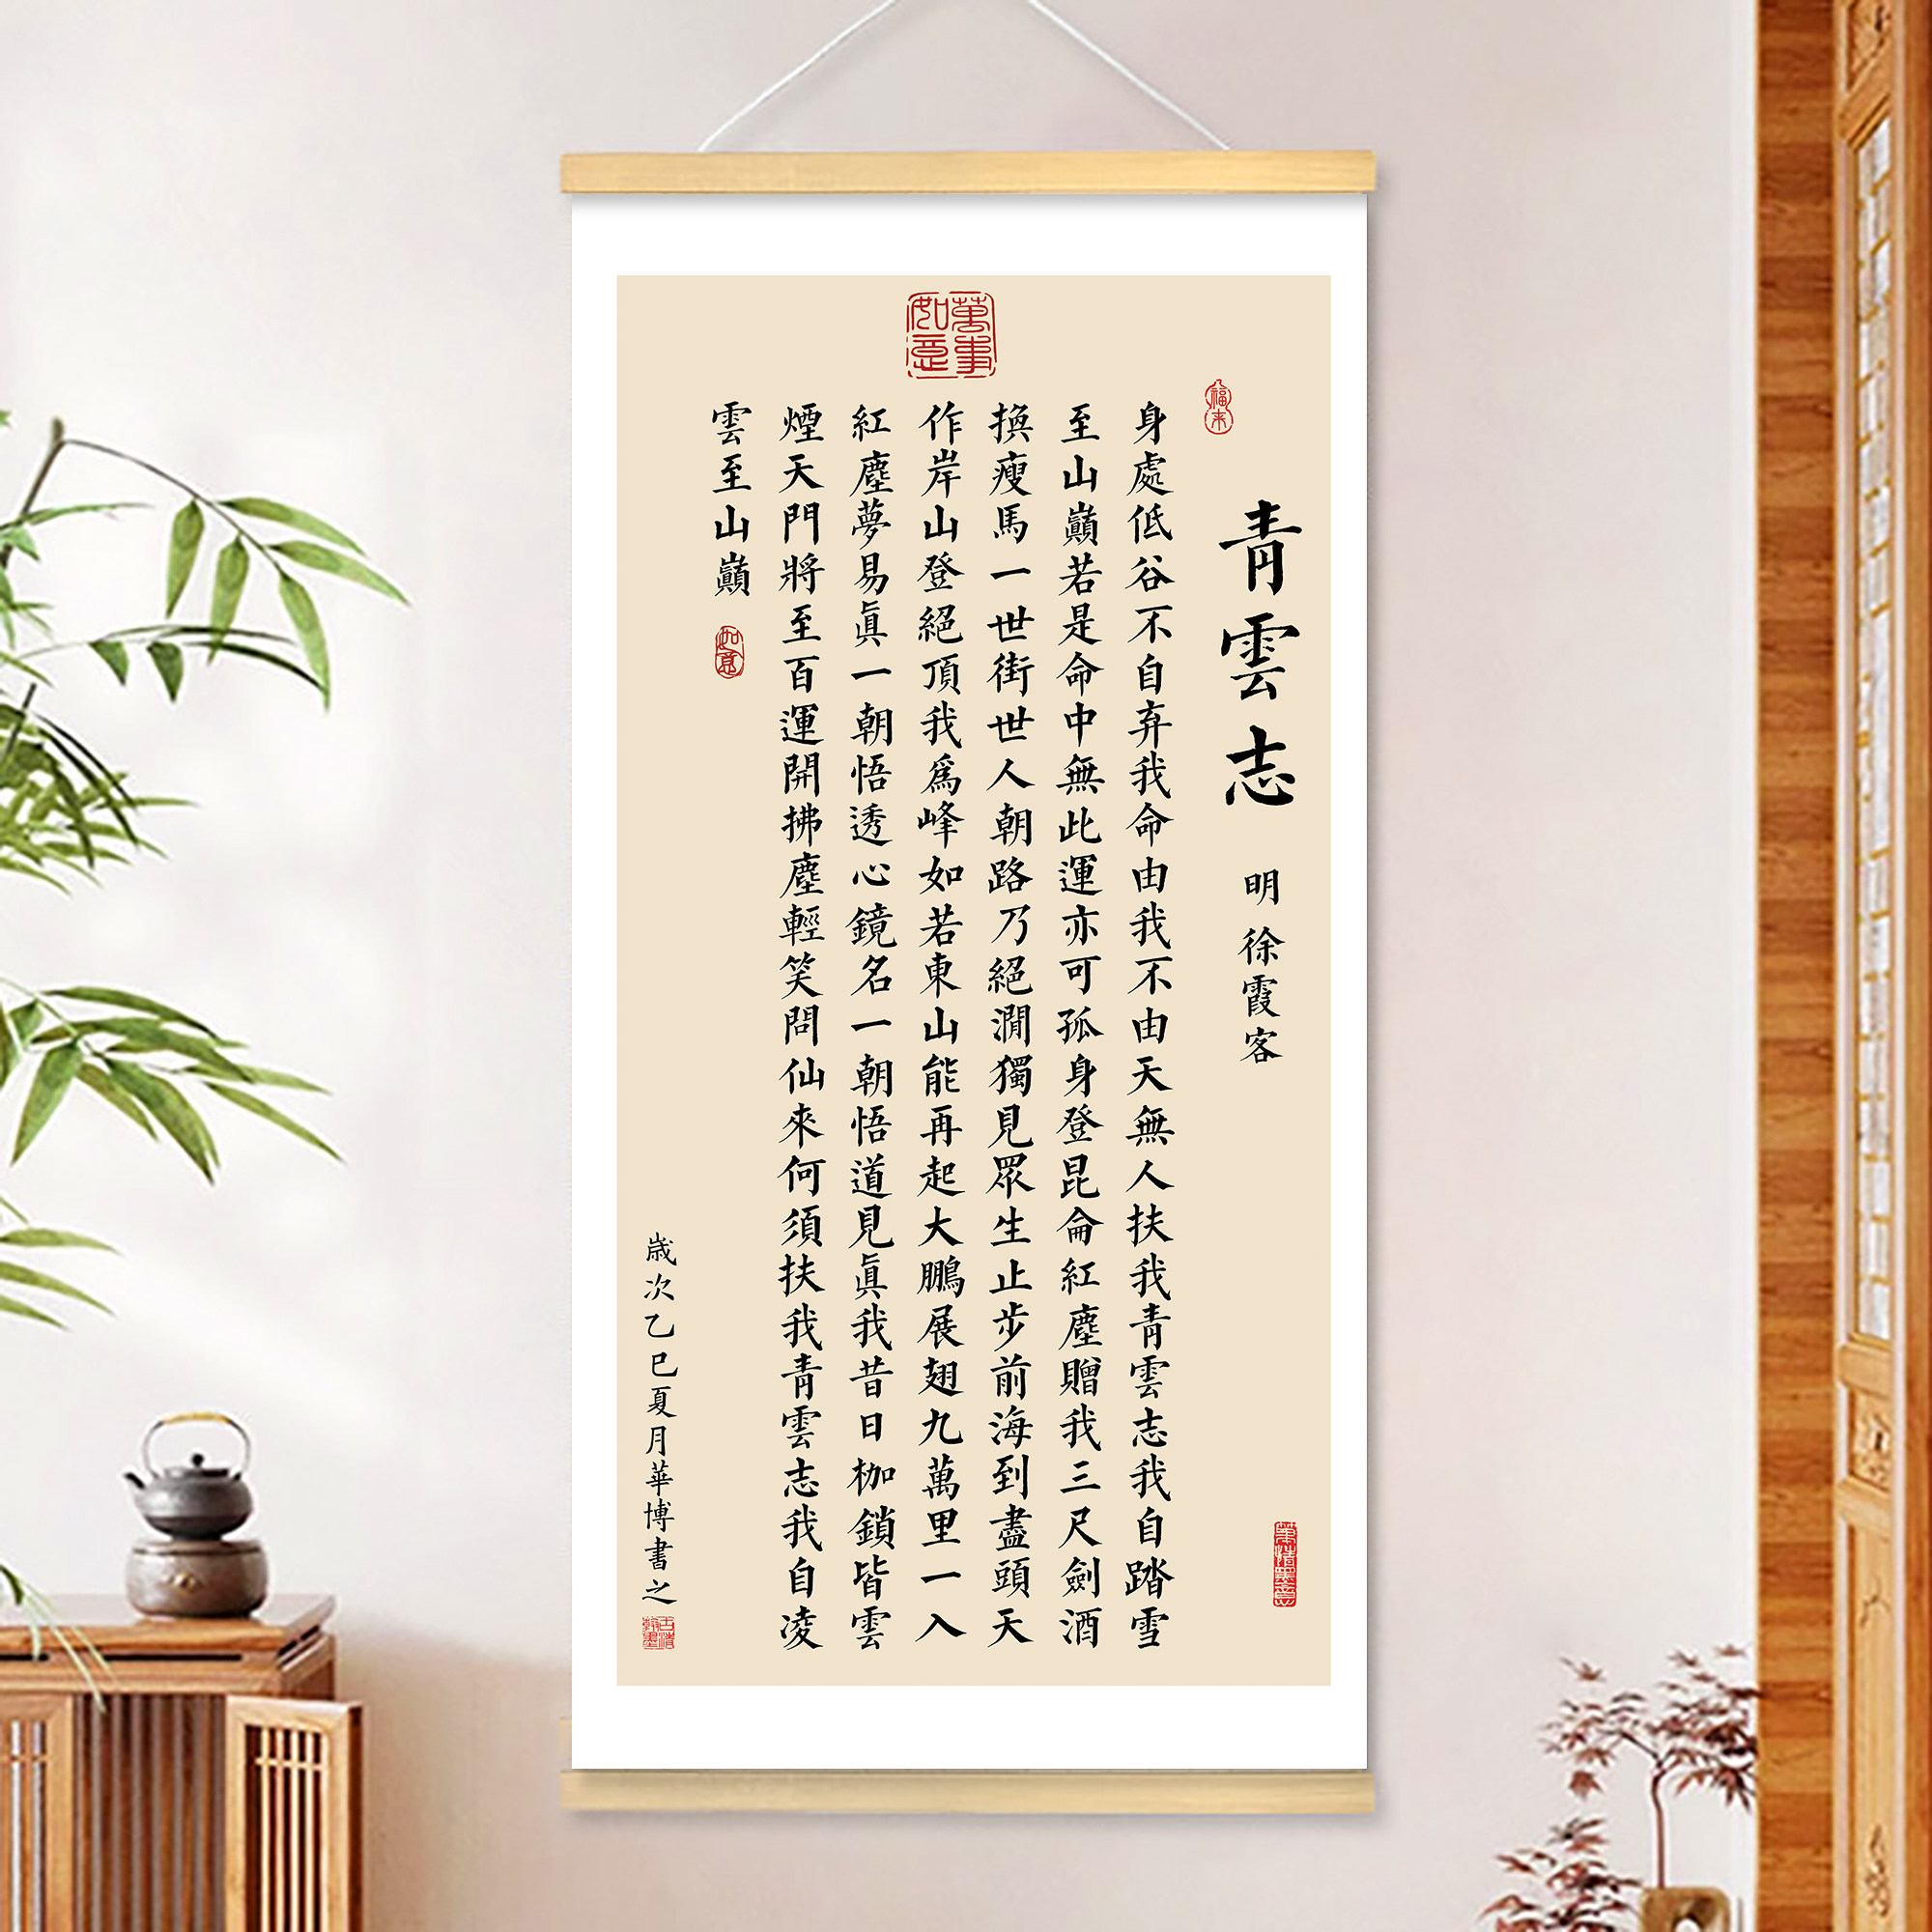 萬事如意
福来
青雲志 明 徐霞客
身處低谷不自弃我命由我不由天無人扶我青雲志我自踏雪
至山巔若是命中無此運亦可孤身登昆侖紅塵贈我三尺劍酒
換瘦馬一世街世人朝路乃絕澗獨見眾生止步前海到盡頭天
作岸山登絕頂我爲峰如若東山能再起大鵬展翅九萬里一入
紅塵夢易眞一朝悟透心鏡名一朝悟道見眞我昔日枷鎖皆雲
煙天門將至百運開拂塵輕笑問仙來何須扶我青雲志我自凌
雲至山巔
如意
歳次乙巳夏月華博書之